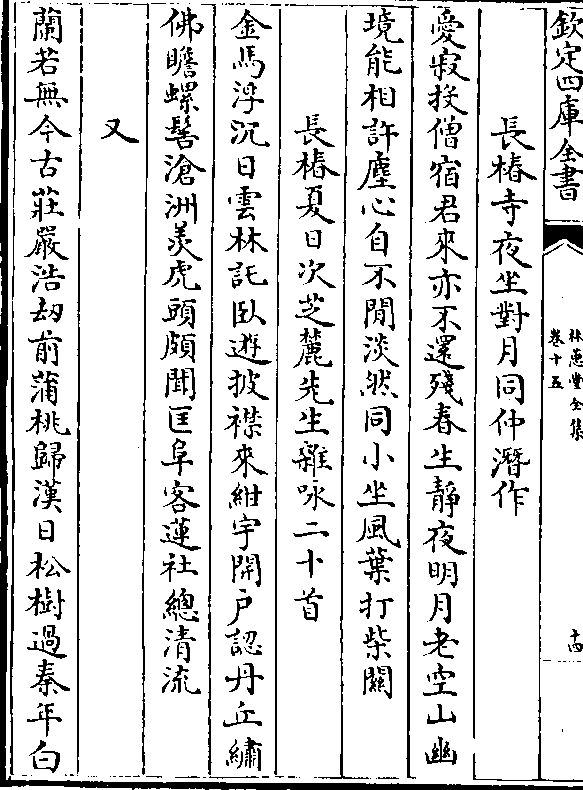 欽定四庫全書
林蕙堂全集
卷十五
十四
長椿寺夜坐對月同仲潛作
愛寂投僧宿君來亦不還殘春生靜夜明月老空山幽
境能相許塵心自不閒淡然同小坐風葉打柴關
長椿夏日次芝麓先生雜咏二十首
金馬浮沉日雲林託臥遊披襟來紺宇開户認丹丘繡
佛瞻螺髻滄洲羡虎頭頗聞匡阜客蓮社總清流
又
蘭若無今古莊嚴浩刼前蒲桃歸漢日松樹過秦年白